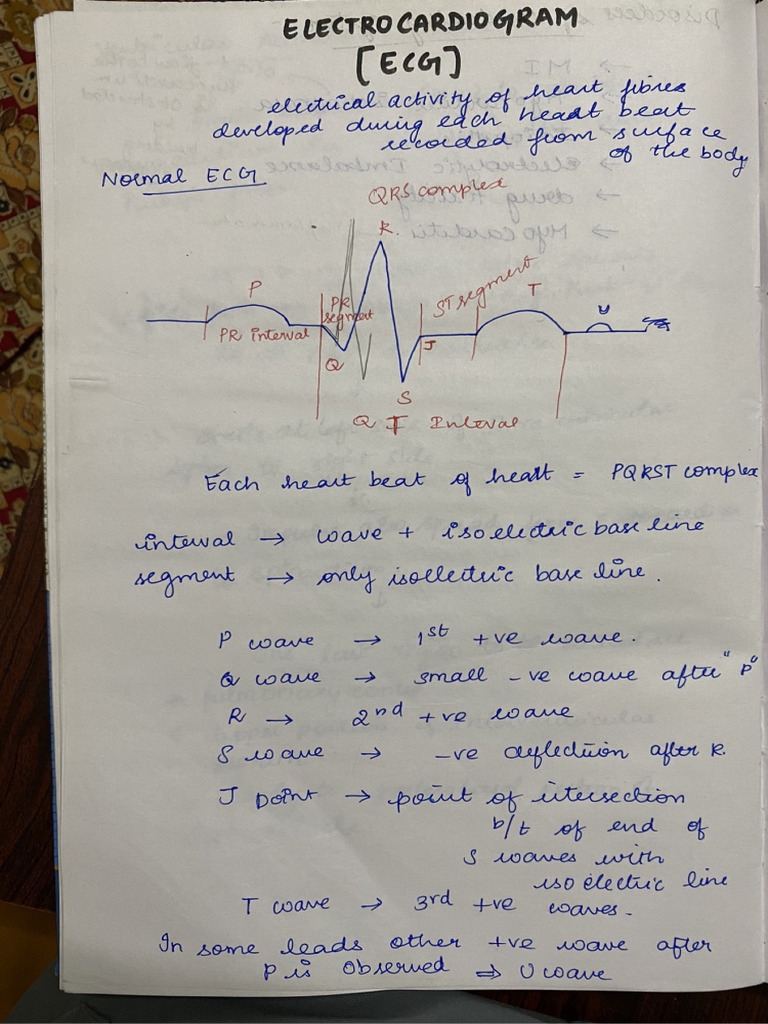 ELECTROCARDIOGRAM
[ECG]
electrical activity of heart fibres
developed during each heart beat
recorded from surface
of the body
Normal ECG
QRS complex
R.
P
PR segment
ST segment
T
U
PR interval
Q
J
S
QT Interval
Each heart beat of heart = PQRST complex
interval → wave + isoelectric base line
segment → only isollectric base line.
P wave → 1st +ve wave.
Q wave → small -ve wave after "P"
R → 2nd +ve wave
S wave → -ve deflection after R.
J point → point of itersection
b/t of end of
S waves with
iso electric line
T wave → 3rd +ve waves.
In some leads other +ve wave after
P is Observed ⇒ U wave